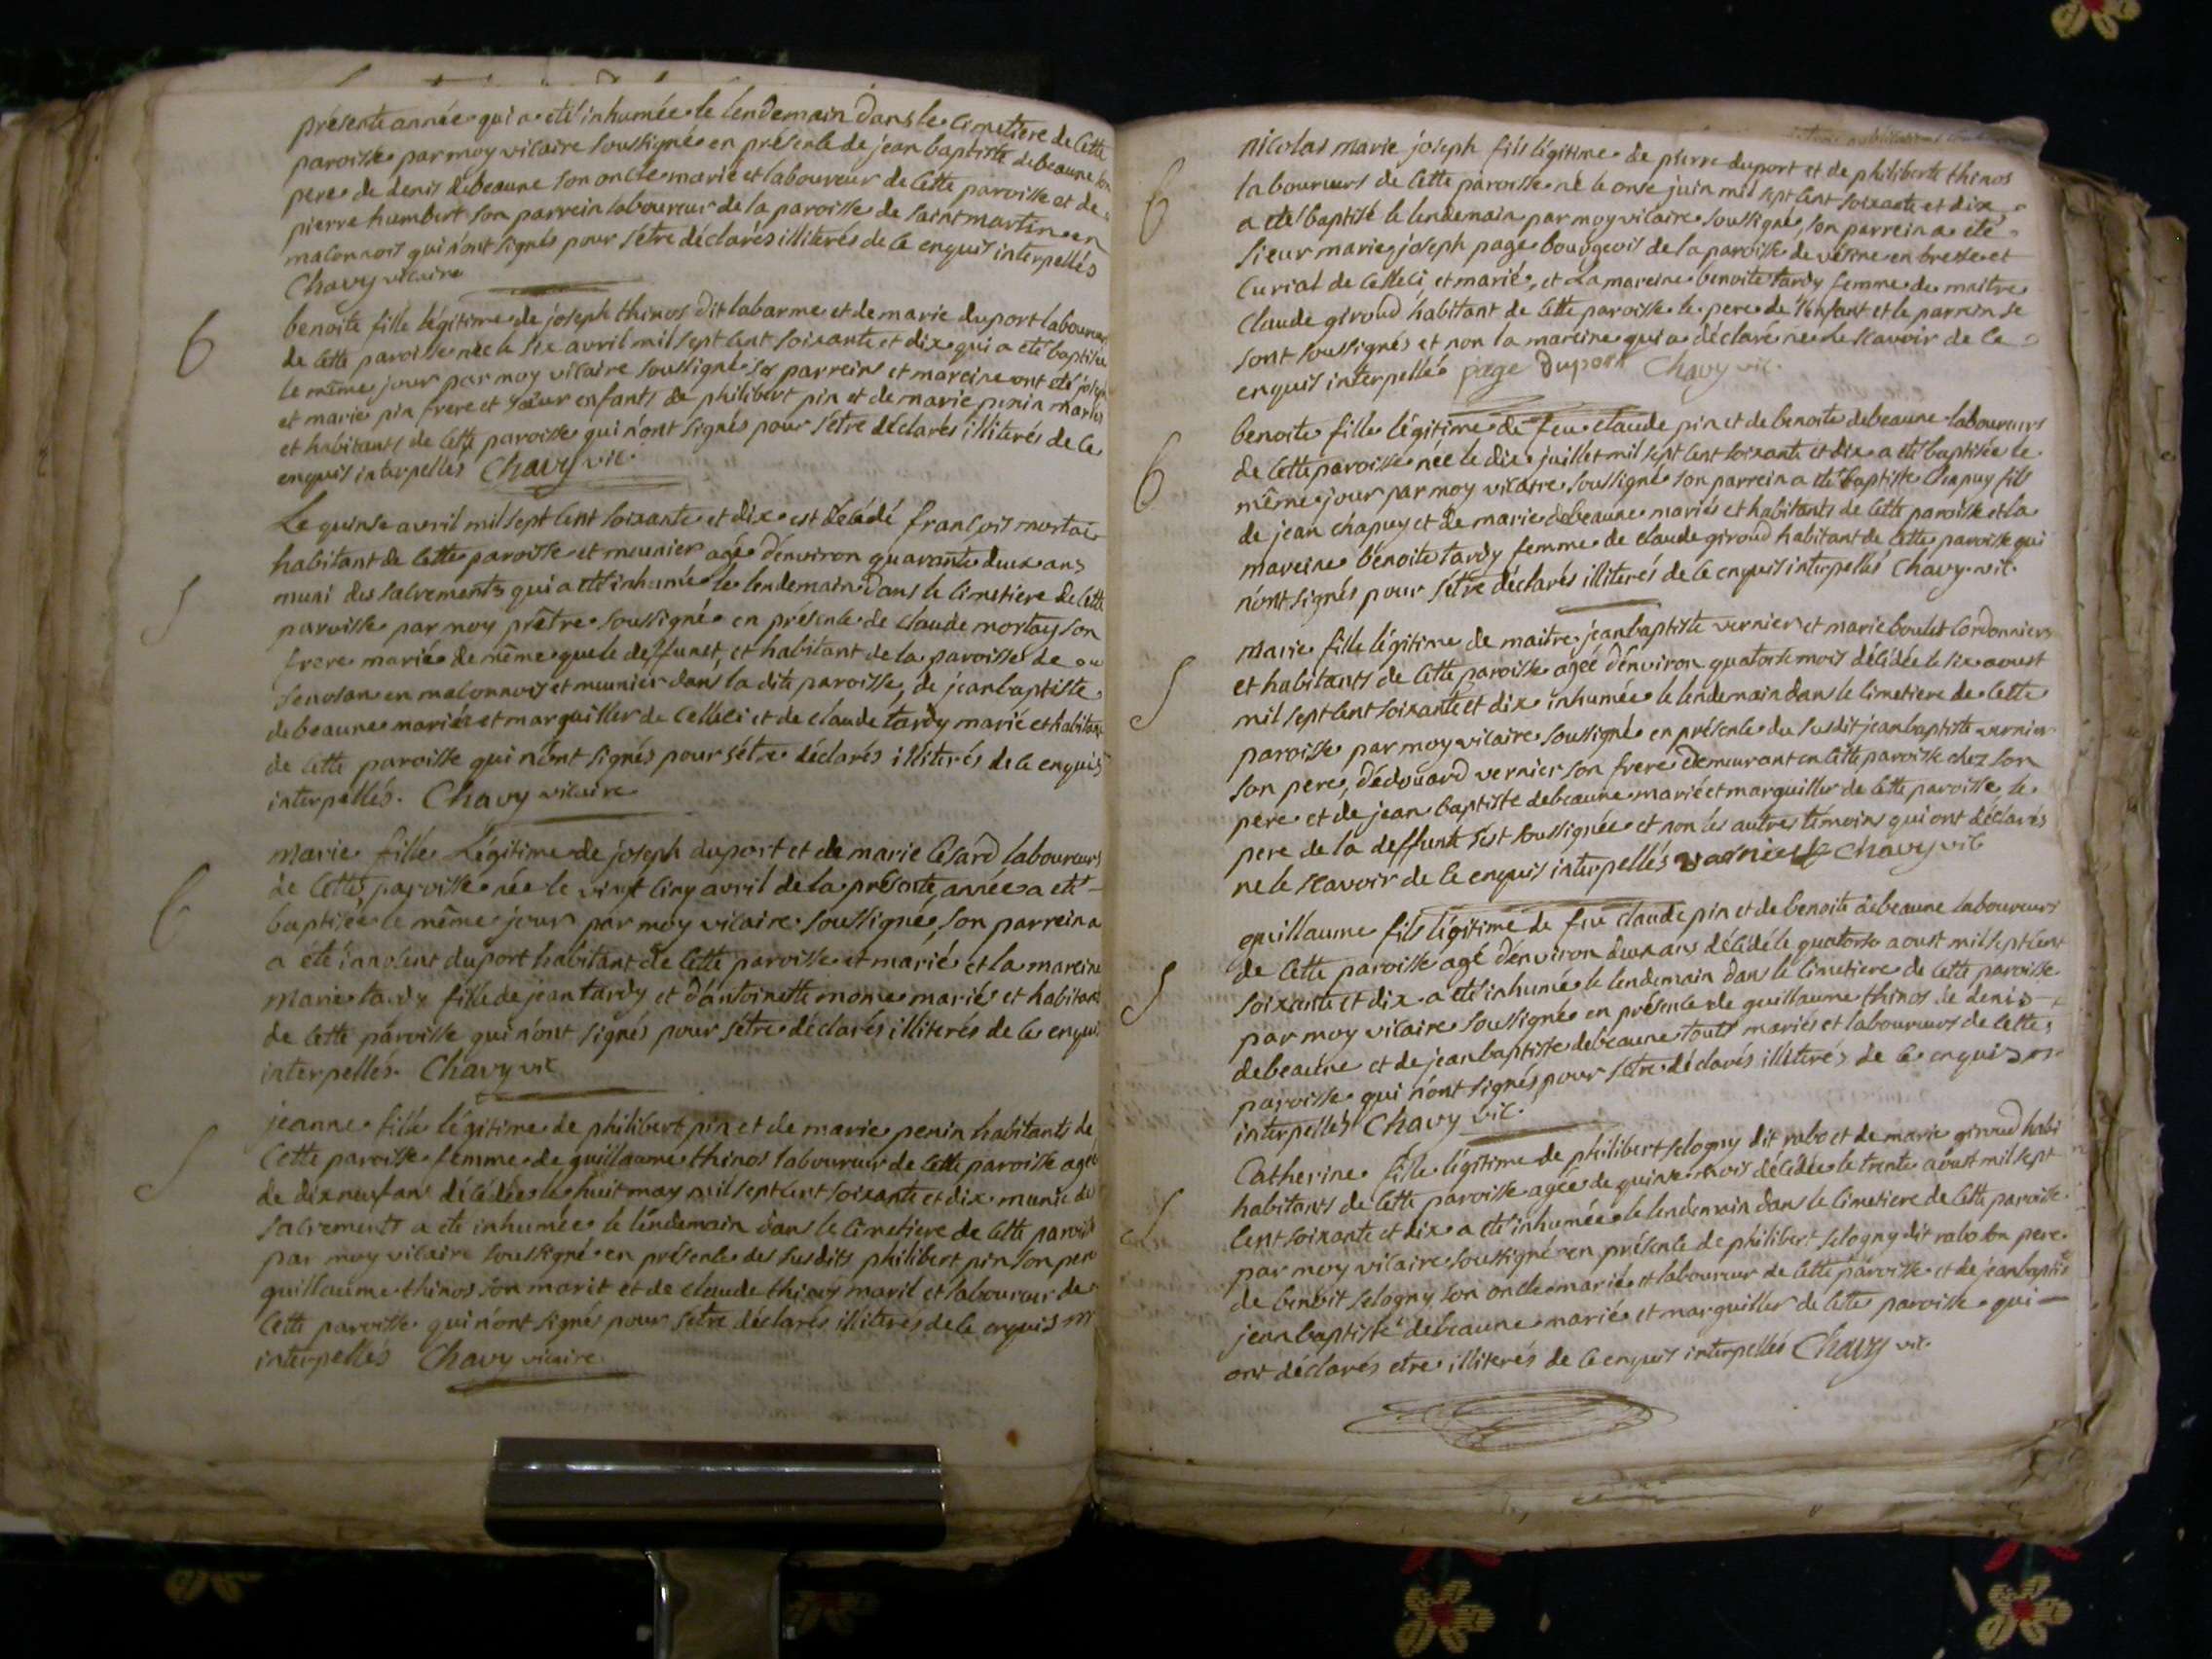 présente année qui a eté inhumée le lendemain dans le cimetiere de cette
paroisse par moy vicaire soussigné en présence de jean baptiste debeaune son
pere de denis debeaune son oncle marié et laboureur de cette paroisse et de
pierre humbert son parrein laboureur de la paroisse de saint martin en
maconnois qui n'ont signés pour s'être déclarés illiterés de ce enquis interpellés
Chavy vicaire
b
benoite fille légitime de joseph thinos dit labarme et de marie duport laboureurs
de cette paroisse née le six avril mil sept cent soixante et dix qui a eté baptisée
le même jour par moy vicaire soussigné ses parrein et mareine ont eté joseph
et marie pin frere et sœur enfants de philibert pin et de marie penin mariés
et habitants de cette paroisse qui n'ont signés pour s'être déclarés illiterés de ce
enquis interpellés Chavy vic.
Le quinse avril mil sept cent soixante et dix est décédé francois mortai
habitant de cette paroisse et meunier agé d'environ quarante deux ans
S
muni des sacrements qui a eté inhumé le lendemain dans le cimetiere de cette
paroisse par moy prêtre soussigné en présence de claude mortay son
frere marié de même que le deffunct, et habitant de la paroisse de
senosan en maconnois et meunier dans la dite paroisse, de jean baptiste
debeaune mariés et marguiller de celleci et de claude tardy marié et habitant
de cette paroisse qui n'ont signés pour s'être déclarés illiterés de ce enquis
interpellés. Chavy vicaire
marie fille Légitime de joseph duport et de marie Cesard laboureurs
de cette paroisse née le vingt cinq avril de la présente année a eté
b
baptisée le même jour par moy vicaire soussigné, son parrein a
a eté innocent duport habitant de cette paroisse et marié et la mareine
marie tardy fille de jean tardy et d'antoinette mome mariés et habitants
de cette paroisse qui n'ont signés pour s'être déclarés illiterés de ce enquis
interpellés. Chavy vic
jeanne fille légitime de philibert pin et de marie penin habitants de
S
Cette paroisse femme de guillaume thinos laboureur de cette paroisse agée
de dix neuf ans décédée le huit may mil sept cent soixante et dix munie des
sacrements a eté inhumée le lendemain dans le cimetiere de cette paroisse
par moy vicaire soussigné en présence des susdits philibert pin son pere
guillaume thinos son marit et de claude thinos marié et laboureur de
Cette paroisse qui n'ont signés pour s'être déclarés illiterés de ce enquis
interpellés Chavy vicaire
nicolas marie joseph fils légitime de pierre duport et de philiberte thinos
b
laboureurs de cette paroisse né le onse juin mil sept cent soixante et dix
a eté baptisé le lendemain par moy vicaire soussigné, son parrein a eté
sieur marie joseph page bourgeois de la paroisse de vésine en bresse et
curial de celleci, et marié, et La mareine benoite tardy femme de maitre
Claude giroud habitant de cette paroisse le pere de l'enfant et le parrein se
sont soussignés et non la mareine qui a déclaré ne le scavoir de ce
enquis interpellée page Duport Chavy vic.
benoite fille légitime de feu claude pin et de benoite debeaune laboureurs
b
de cette paroisse née le dix juillet mil sept cent soixante et dix a eté baptisée le
même jour par moy vicaire soussigné son parrein a eté baptiste chapuy fils
de jean chapuy et de marie debeaune mariés et habitants de cette paroisse et la
mareine benoite tardy femme de claude giroud habitant de cette paroisse qui
n'ont signés pour s'être déclarés illiterés de ce enquis interpellés Chavy vic.
marie fille légitime de maitre jean baptiste vernier et marie boulet Cordonniers
S
et habitants de cette paroisse agée d'environ quatorse mois décédée le six aoust
mil sept cent soixante et dix inhumée le lendemain dans le cimetiere de cette
paroisse par moy vicaire soussigné en présence du susdit jean baptiste vernier
son pere, d'edouard vernier son frere demeurant en cette paroisse chez son
pere et de jean baptiste debeaune marié et marguiller de cette paroisse, le
pere de la deffunte s'est soussignée et non les autres témoins qui ont déclarés
ne le scavoir de ce enquis interpellés varnier Chavy vic
guillaume fils légitime de feu claude pin et de benoite debeaune laboureurs
S
de cette paroisse agé d'environ deux ans décédé le quatorse aoust mil sept cent
soixante et dix a eté inhumé le lendemain dans le cimetiere de cette paroisse
par moy vicaire soussigné en présence de guillaume thinos de denis
debeaune et de jean baptiste debeaune touts mariés et laboureurs de cette
paroisse qui n'ont signés pour s'être déclarés illiterés de ce enquis
interpellés Chavy vic.
Catherine fille légitime de philibert selogny dit rabo et de marie giroud habi
S
habitants de cette paroisse agée de quinse mois décédée le trente aoust mil sept
cent soixante et dix a eté inhumée le lendemain dans le cimetiere de cette paroisse
par moy vicaire soussigné en présence de philibert selogny dit rabo son pere
de benoit selogny son oncle marié et laboureur de cette paroisse et de jean baptiste
jean baptiste debeaune marié et marguiller de cette paroisse qui
ont déclarés etre illiterés de ce enquis interpellés Chavy vic.